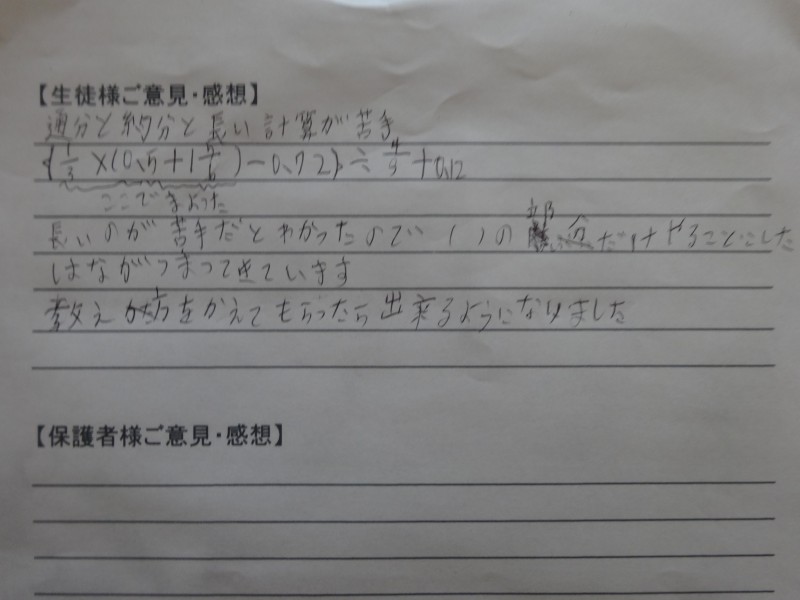 【生徒様ご意見・感想】
通分と約分と長い計算が苦手
{1/3×(0.5+1 5/6)-0.72}÷4/9+0.12
ここでまよった
長いのが苦手だとわかったので、( )の部分だけやることにした
はながつまってきています
教え方をかえてもらったら出来るようになりました
【保護者様ご意見・感想】